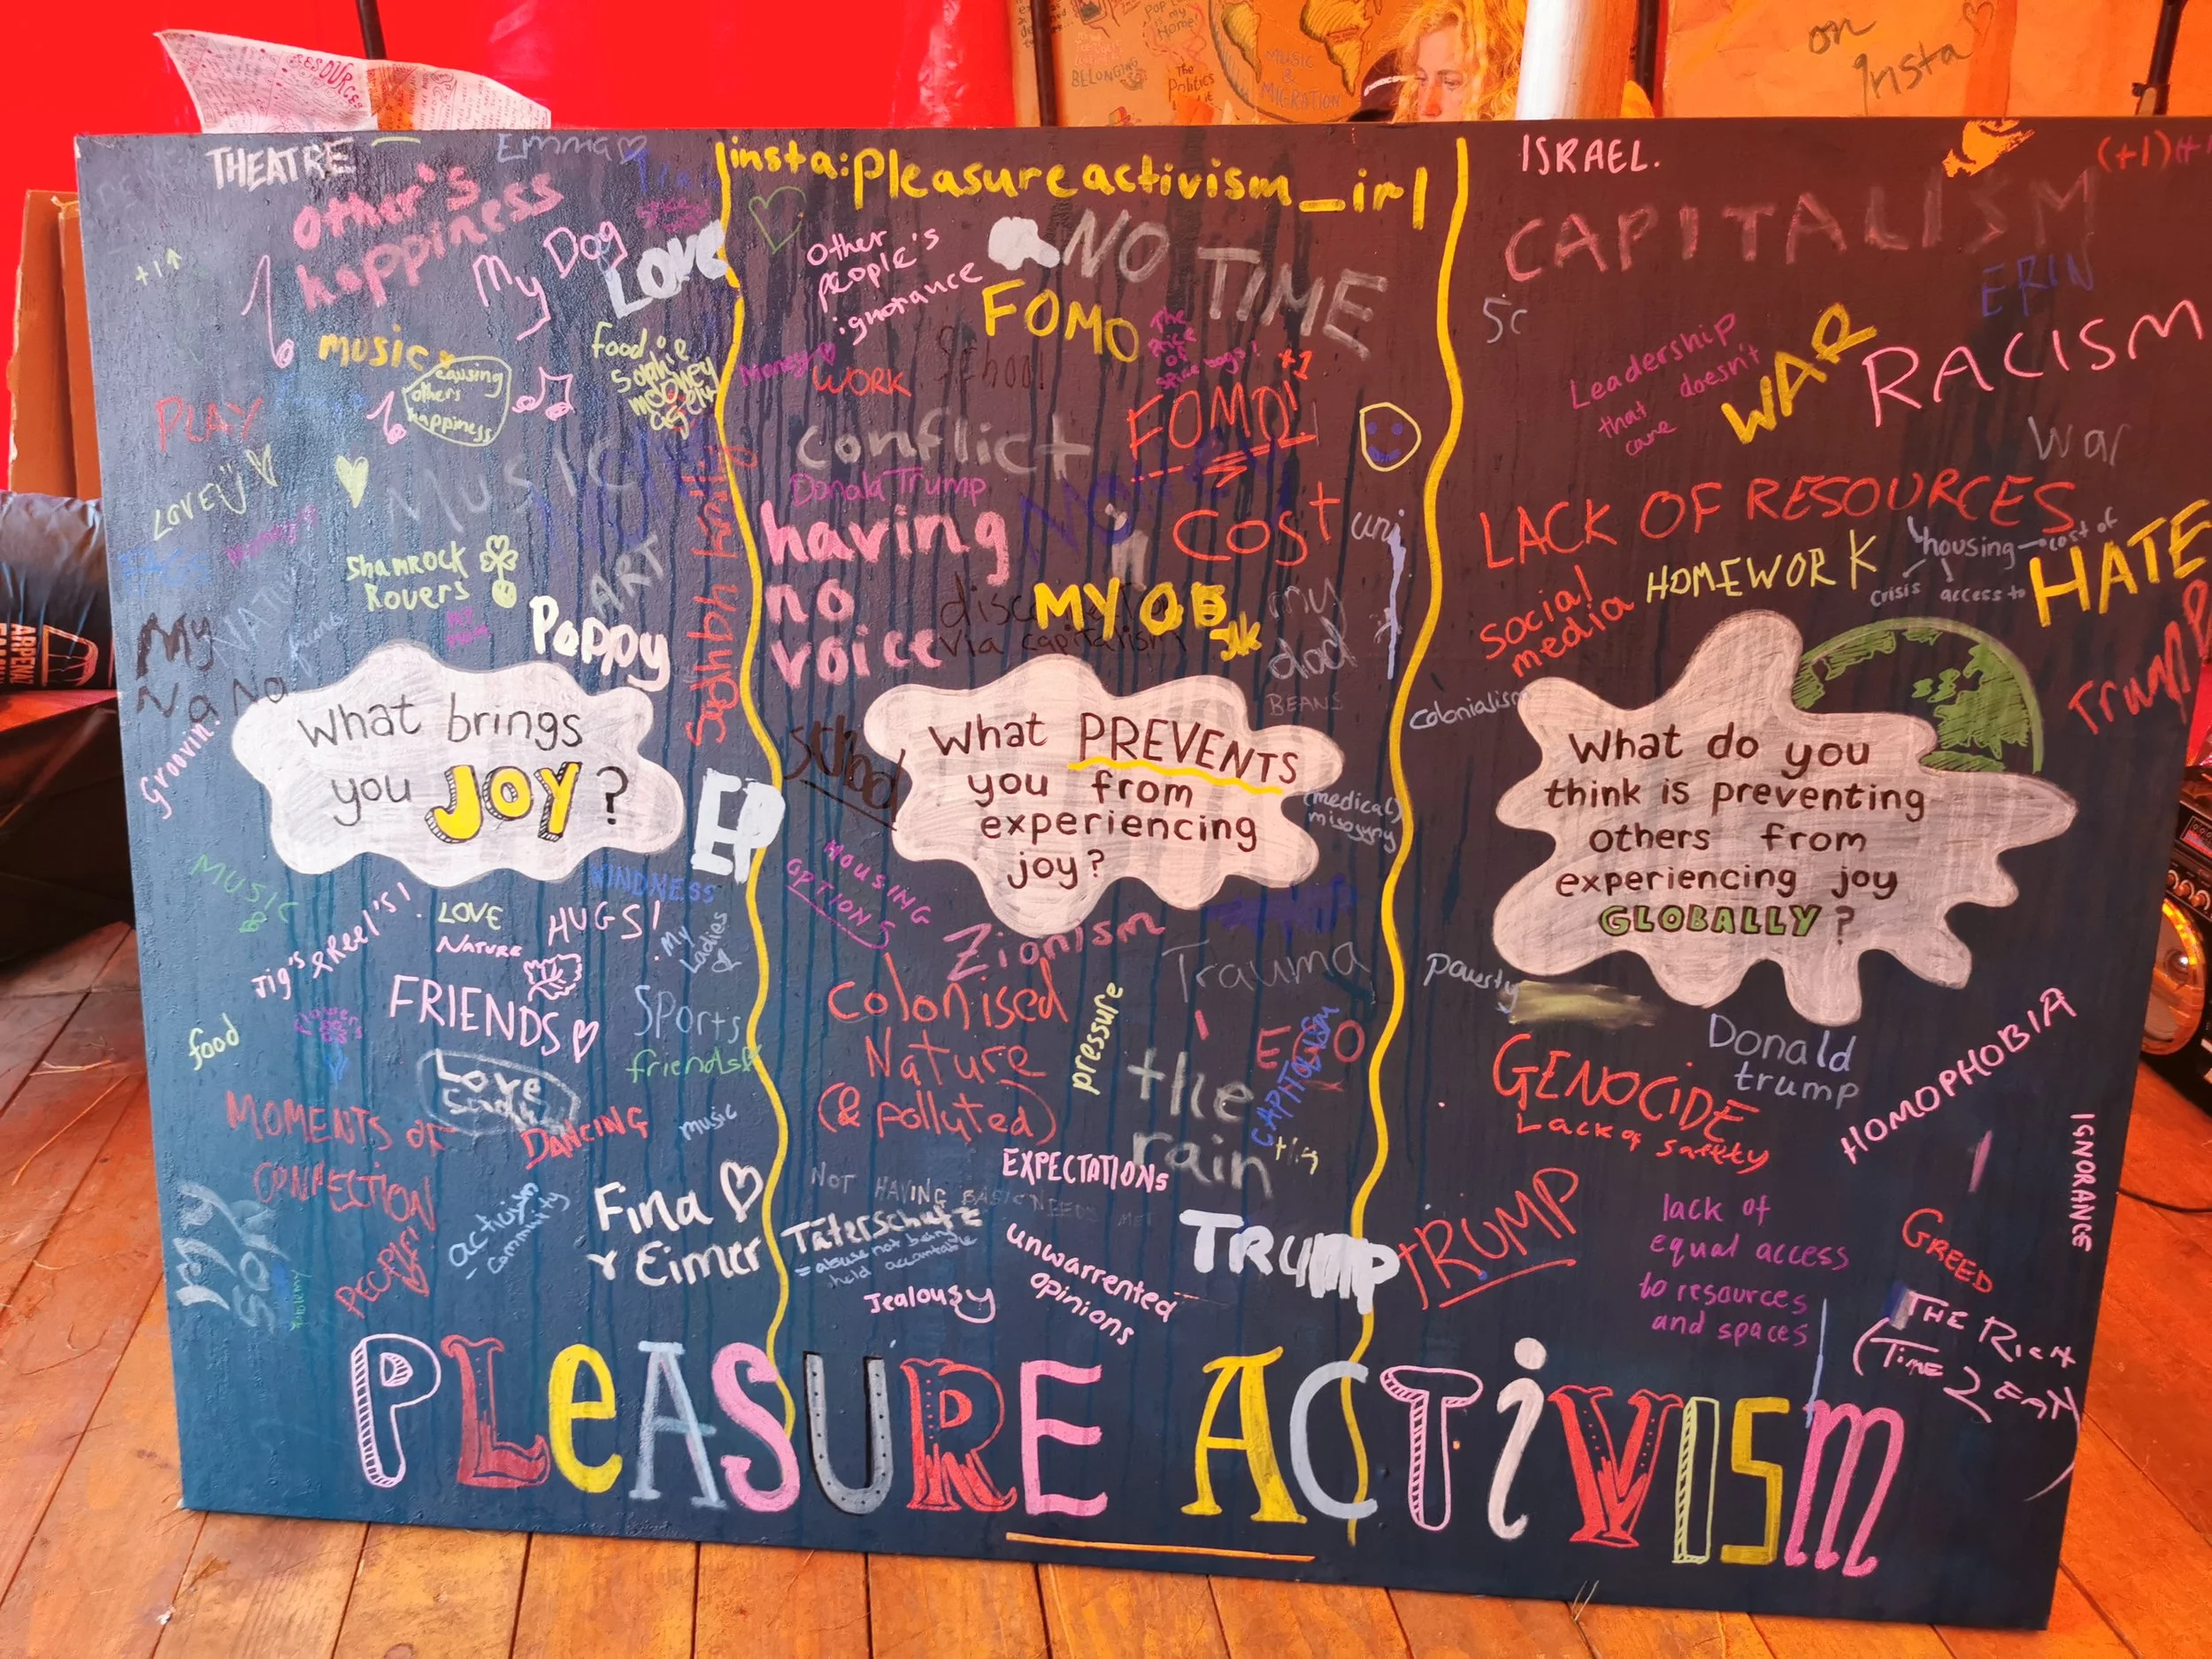 RESOURCES
BELONGING
The
Politics
MUSIC
&
MIGRATION
on
Insta
THEATRE
Emma
other's
happiness
My Dog
LOVE
+1
MUSIC
causing
others
happiness
food
PLAY
LOVE
MUSIC
Shamrock
Rovers
ART
Poppy
Sadhbh
My
Na Na
Groovin'
What brings
you JOY?
EP
MUSIC
KINDNESS
Jig's & Reel's!
LOVE
NATURE
HUGS!
My
Ladies
FRIENDS
Sports
friends
food
flowers
Love
MOMENTS OF
CONNECTION
DANCING
music
PEOPLE!
activism
- community
Fina
& Eimer
MY
SON
insta:pleasureactivism_irl
Other
people's
ignorance
NO TIME
FOMO
The
Price
of
spice bags!
Money
WORK
School
FOMO!
+1
conflict
Donald Trump
MONEY
having
no
voice
Cost
uni
via capitalism
MY OB
JK
my
dad
BEANS
School
What PREVENTS
you from
experiencing
joy?
(medical)
misogyny
HOUSING
OPTIONS
Zionism
Trauma
Colonised
Nature
(& polluted)
pressure
EGO
CAPITALISM
the
rain
EXPECTATIONS
NOT HAVING BASIC NEEDS MET
Täterschutz
= abuse not being
held accountable
Jealousy
unwarrented
opinions
TRUMP
ISRAEL.
(+1)
CAPITALISM
ERIN
5c
Leadership
that doesn't
care
WAR
RACISM
war
LACK OF RESOURCES
housing
cost of
crisis
access to
HOMEWORK
HATE
social
media
Trump
colonialism
What do you
think is preventing
others from
experiencing joy
GLOBALLY?
poverty
Donald
trump
GENOCIDE
Lack of safety
HOMOPHOBIA
IGNORANCE
TRUMP
lack of
equal access
to resources
and spaces
GREED
THE RICH
(TIME 2 EAT)
PLeASURE ACTiVISm